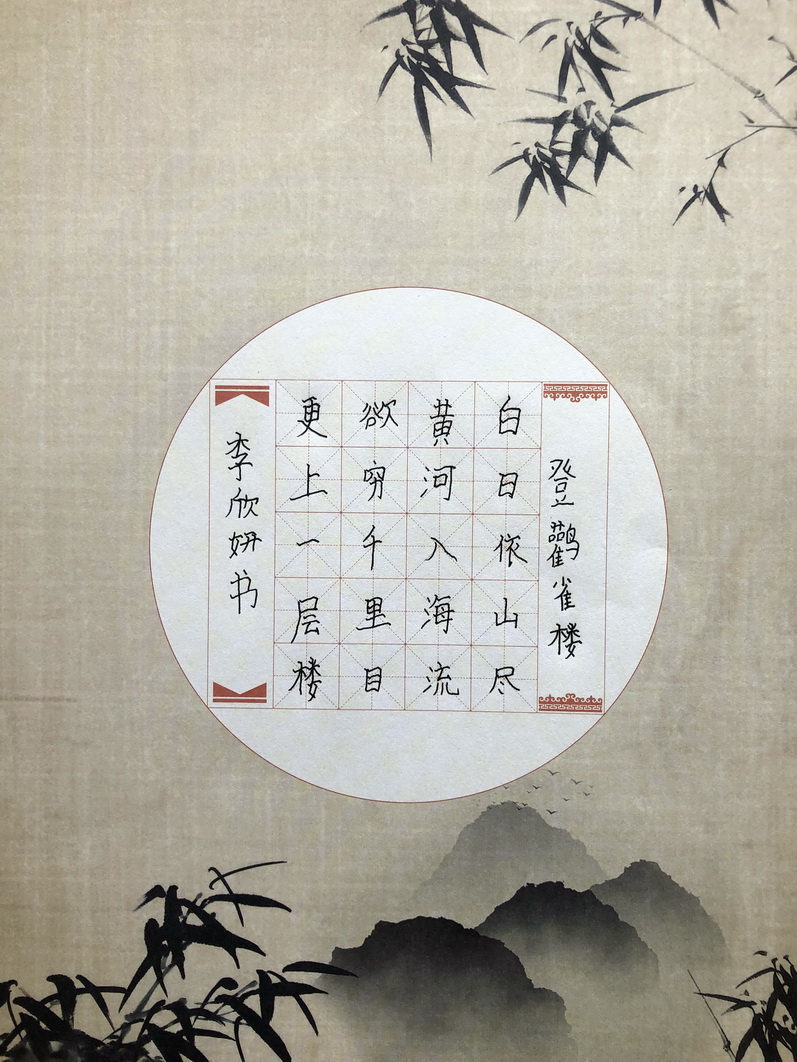 登鹳雀楼
白日依山尽
黄河入海流
欲穷千里目
更上一层楼
李欣妍书